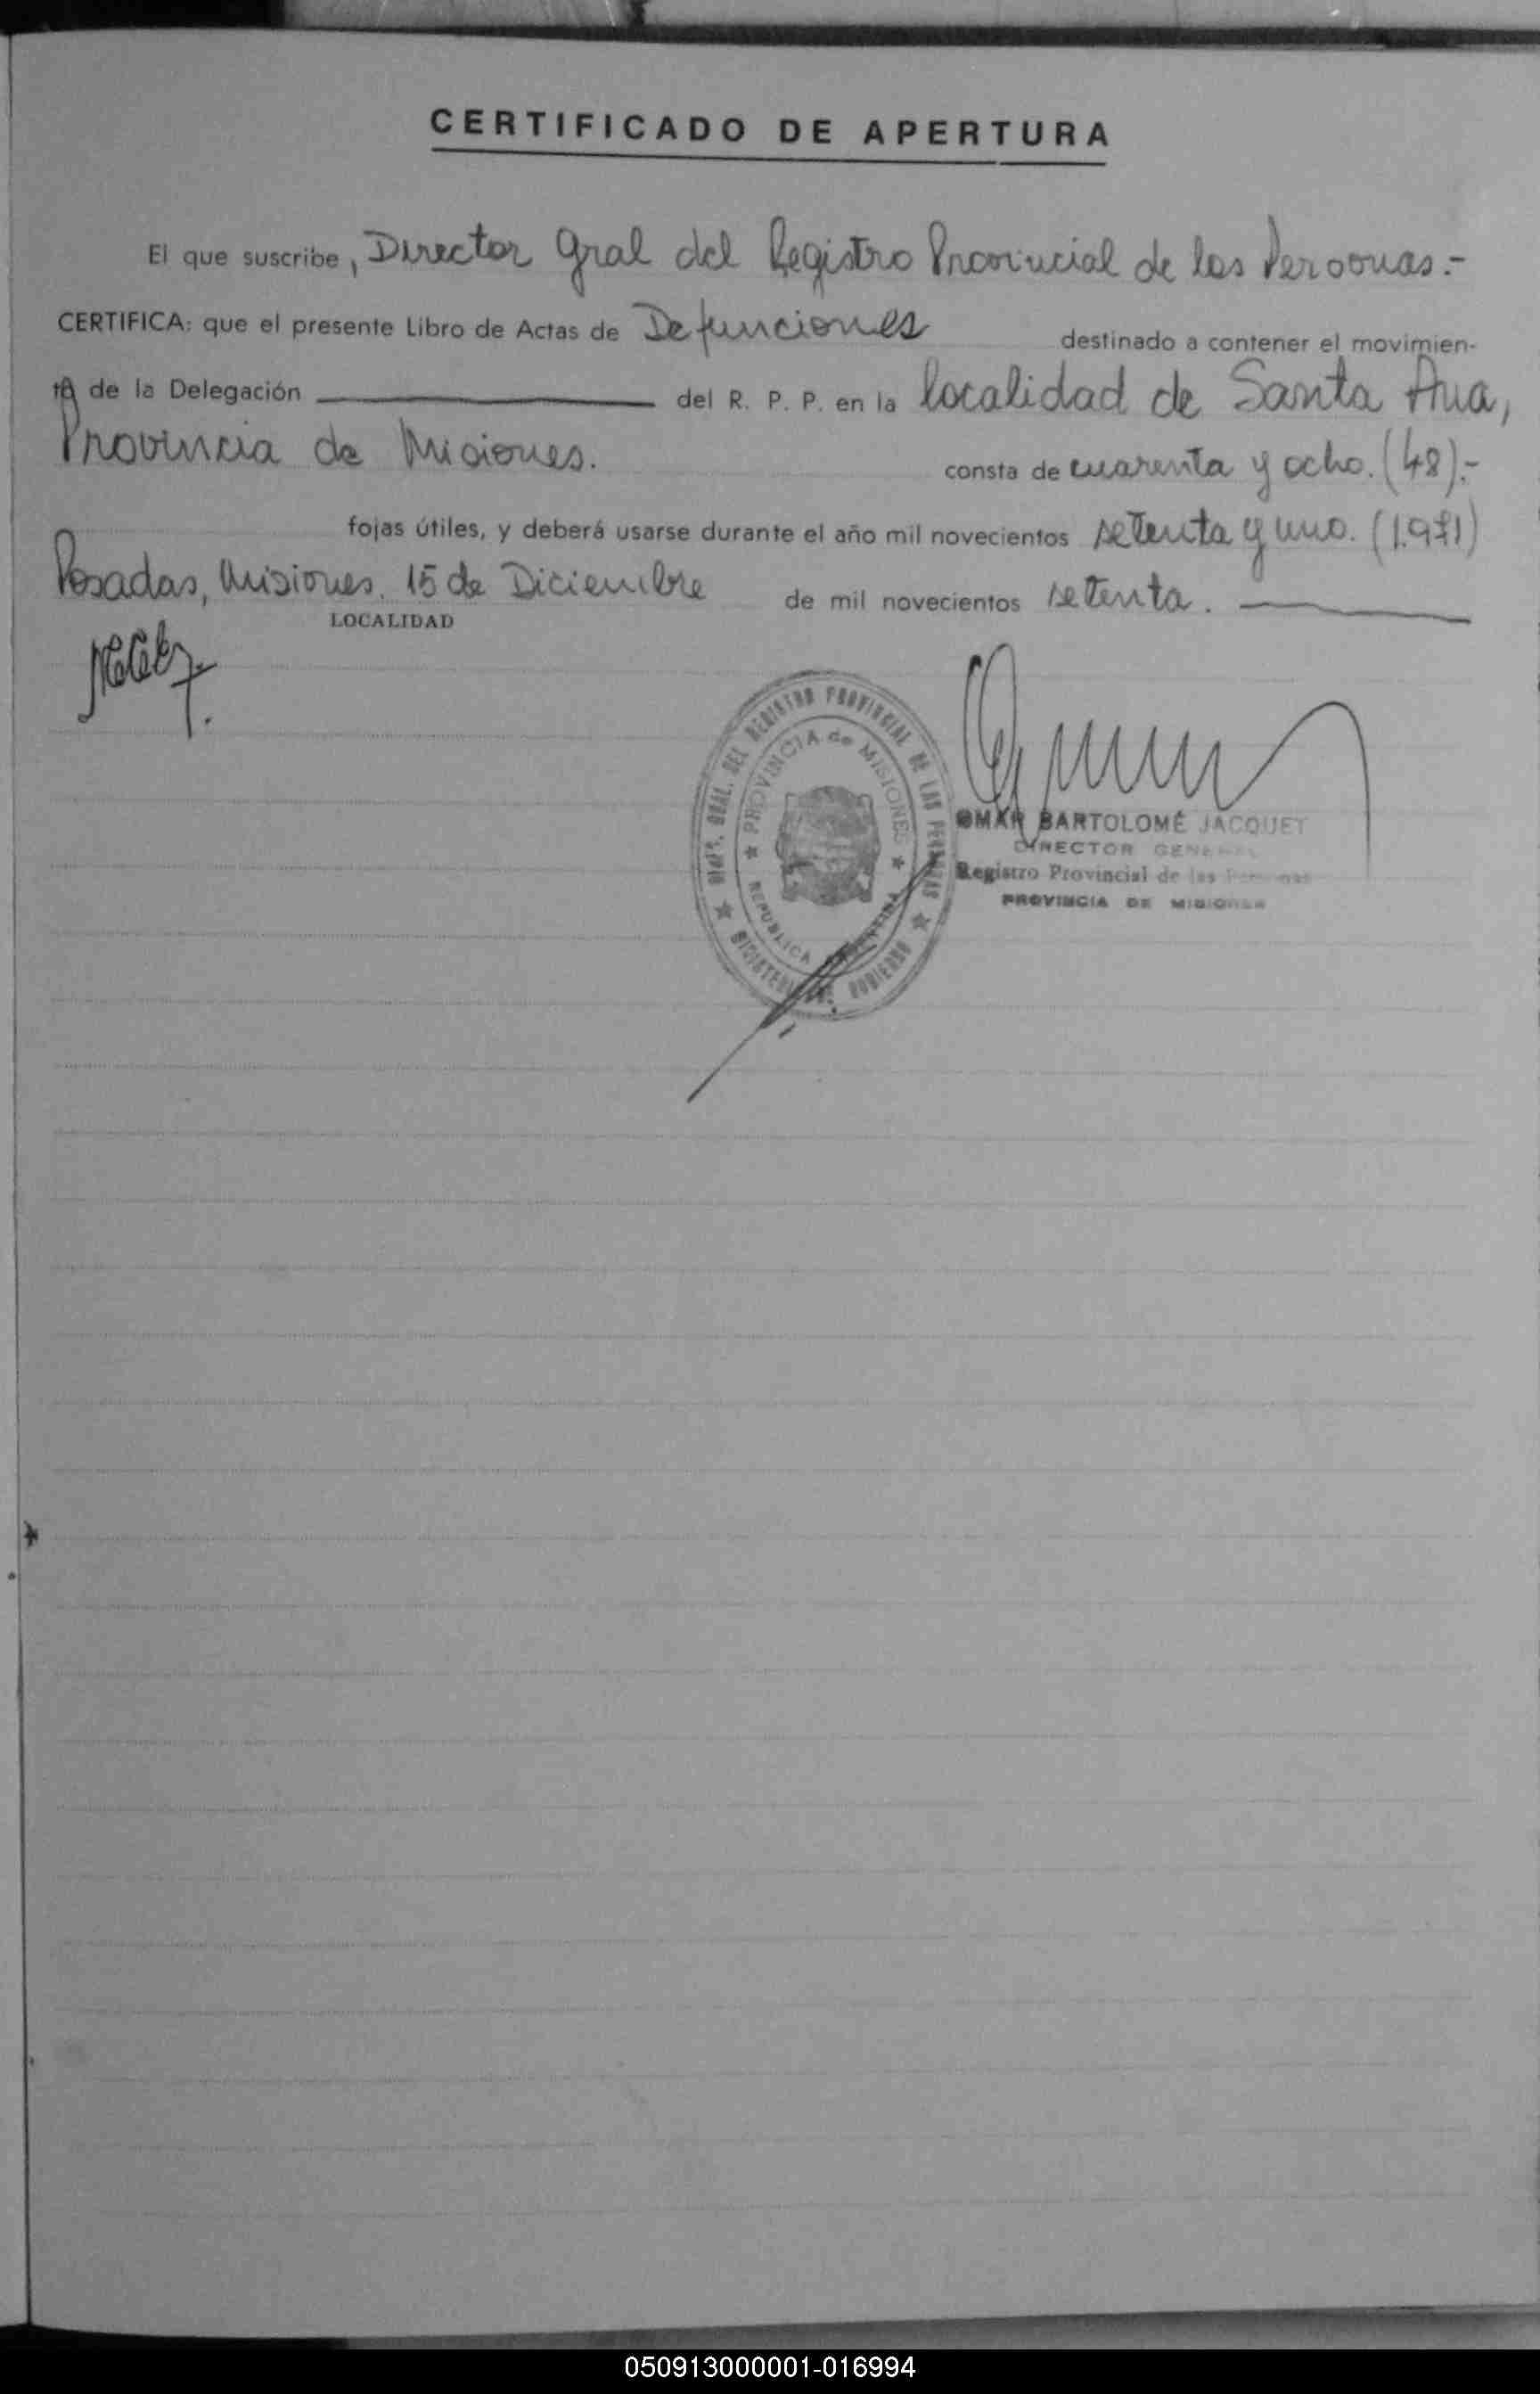 CERTIFICADO DE APERTURA
El que suscribe, Director Gral del Registro Provincial de las Personas.-
CERTIFICA: que el presente Libro de Actas de Defunciones destinado a contener el movimien-
to de la Delegación ——— del R. P. P. en la localidad de Santa Ana,
Provincia de Misiones. consta de cuarenta y ocho. (48).-
fojas útiles, y deberá usarse durante el año mil novecientos setenta y uno. (1.971)
Posadas, Misiones. 15 de Diciembre de mil novecientos setenta. ———
LOCALIDAD
GRAL. DEL REGISTRO PROVINCIAL DE LAS PERSONAS
PROVINCIA de MISIONES
REPUBLICA ARGENTINA
MINISTERIO DE GOBIERNO
OMAR BARTOLOMÉ JACQUET
DIRECTOR GENERAL
Registro Provincial de las Personas
PROVINCIA DE MISIONES
050913000001-016994